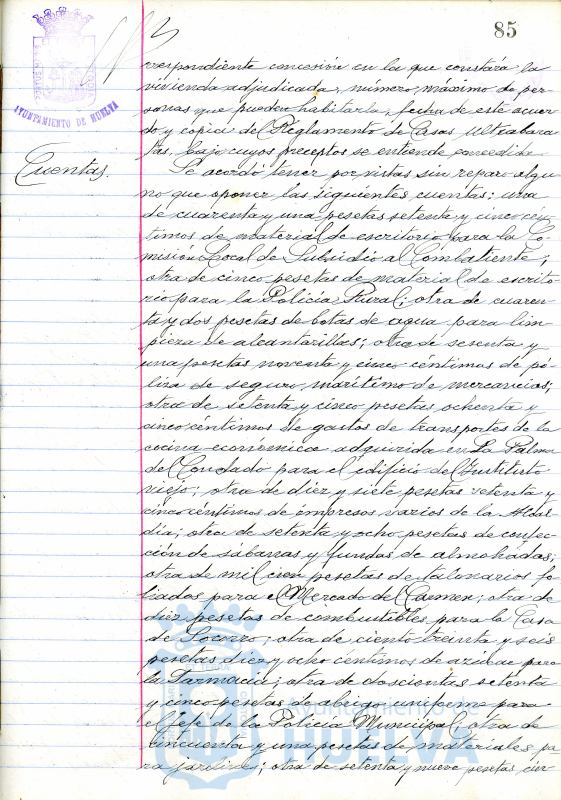 85
AYUNTAMIENTO DE HUELVA
rrespondiente concesión en la que constará la
vivienda adjudicada, número máximo de per-
sonas que pueden habitarla, fecha de este acuer-
do y copia del Reglamento de Casas Ultrabara-
tas, bajo cuyos preceptos se entiende concedida
Cuentas.
Se acordó tener por vistas sin reparo algu-
no que oponer las siguientes cuentas: una
de cuarenta y una pesetas setenta y cinco cén-
timos de material de escritorio para la Co-
misión Local de Subsidio al Combatiente;
otra de cinco pesetas de material de escrito-
rio para la Policía Rural; otra de cuaren-
ta y dos pesetas de botas de agua para lim-
pieza de alcantarillas; otra de sesenta y
una pesetas noventa y cinco céntimos de pó-
liza de seguro marítimo de mercancías;
otra de setenta y cinco pesetas ochenta y
cinco céntimos de gastos de transportes de la
cocina económica adquirida en La Palma
del Condado para el edificio del Instituto
viejo; otra de diez y siete pesetas setenta y
cinco céntimos de impresos varios de la Alcal-
día; otra de setenta y ocho pesetas de confec-
ción de sábanas y fundas de almohadas;
otra de mil cien pesetas de talonarios fo-
liados para el Mercado del Carmen; otra de
diez pesetas de combustibles para la Casa
de Socorro; otra de ciento treinta y seis
pesetas diez y ocho céntimos de azúcar para
la Farmacia; otra de doscientas setenta
y cinco pesetas de abrigo uniforme para
el Jefe de la Policía Municipal; otra de
cincuenta y una pesetas de materiales pa-
ra jardines; otra de setenta y nueve pesetas cin-
Ayuntamiento de
HUELVA